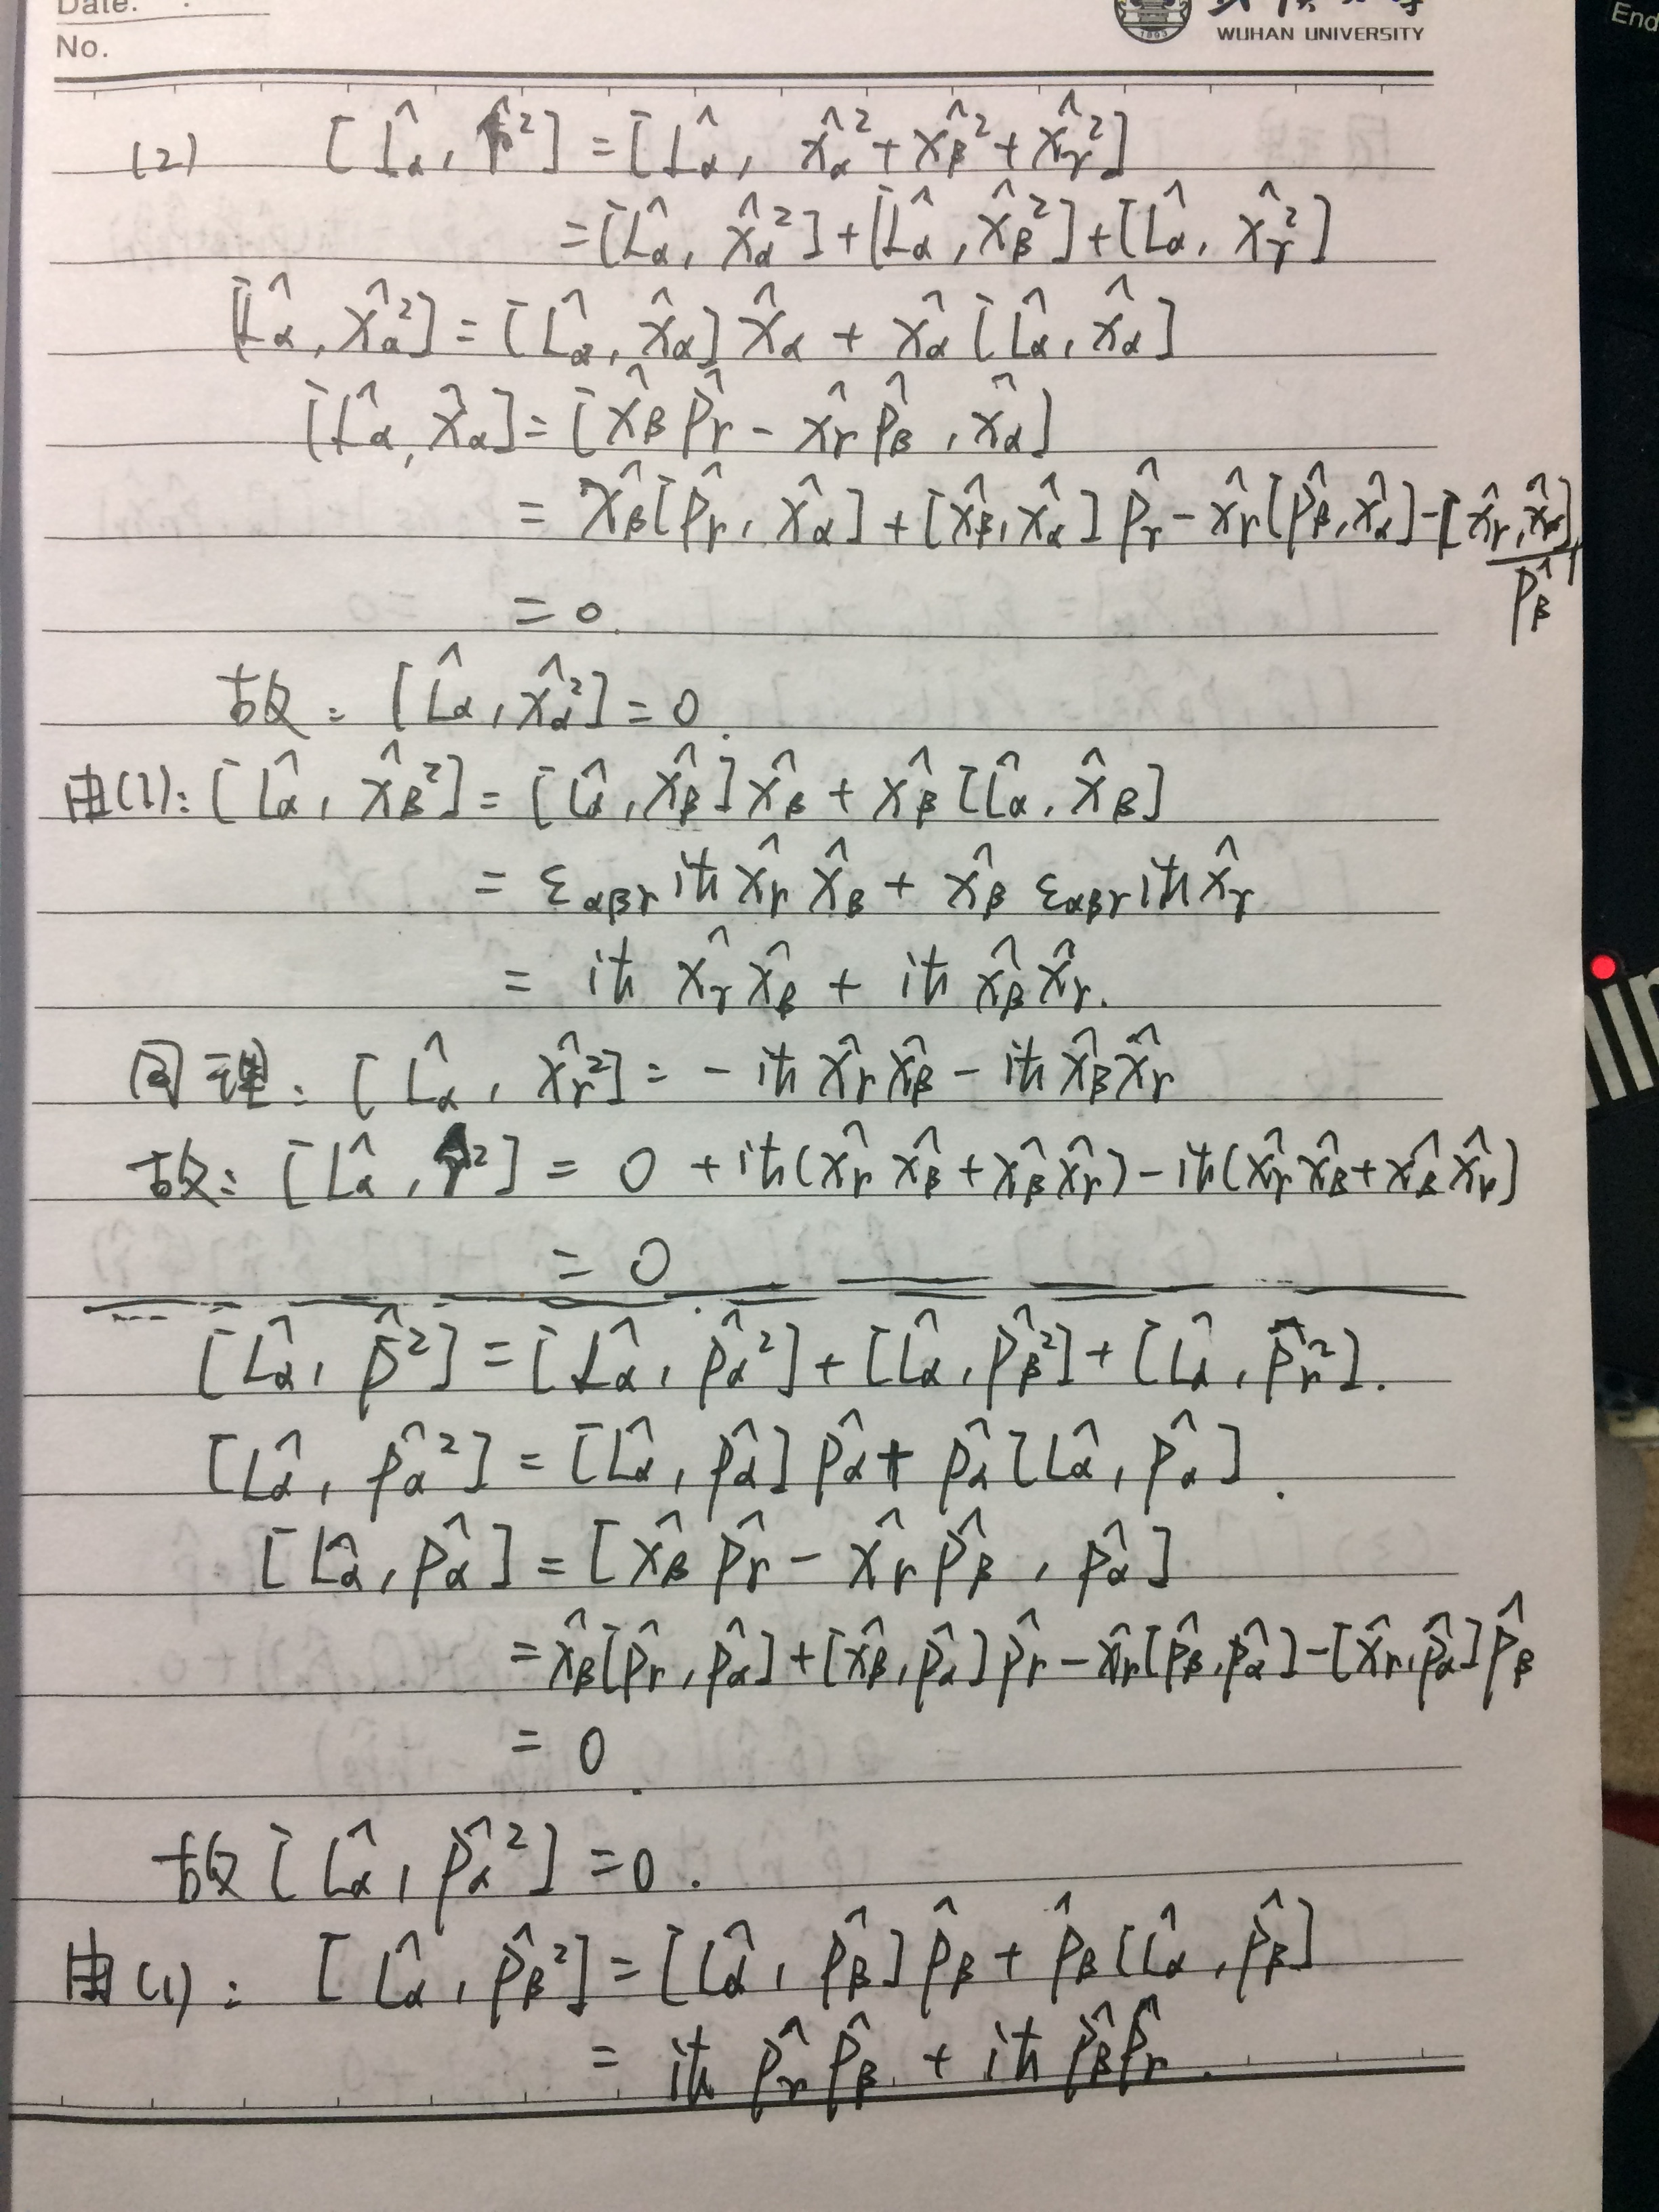 Date.
No.
WUHAN UNIVERSITY
End
(2) [L̂α, r̂²] = [L̂α, x̂α² + x̂β² + x̂γ²]
= [L̂α, x̂α²] + [L̂α, x̂β²] + [L̂α, x̂γ²]
[L̂α, x̂α²] = [L̂α, x̂α] x̂α + x̂α [L̂α, x̂α]
[L̂α, x̂α] = [x̂β p̂γ - x̂γ p̂β, x̂α]
= x̂β[p̂γ, x̂α] + [x̂β, x̂α] p̂γ - x̂γ[p̂β, x̂α] - [x̂γ, x̂α]
p̂β
= 0.
故: [L̂α, x̂α²] = 0.
由(1): [L̂α, x̂β²] = [L̂α, x̂β] x̂β + x̂β [L̂α, x̂β]
= εαβγ iħ x̂γ x̂β + x̂β εαβγ iħ x̂γ
= iħ x̂γ x̂β + iħ x̂β x̂γ.
同理: [L̂α, x̂γ²] = - iħ x̂γ x̂β - iħ x̂β x̂γ
故: [L̂α, r̂²] = 0 + iħ(x̂γ x̂β + x̂β x̂γ) - iħ(x̂γ x̂β + x̂β x̂γ)
= 0.
[L̂α, p̂²] = [L̂α, p̂α²] + [L̂α, p̂β²] + [L̂α, p̂γ²].
[L̂α, p̂α²] = [L̂α, p̂α] p̂α + p̂α [L̂α, p̂α].
[L̂α, p̂α] = [x̂β p̂γ - x̂γ p̂β, p̂α]
= x̂β[p̂γ, p̂α] + [x̂β, p̂α] p̂γ - x̂γ[p̂β, p̂α] - [x̂γ, p̂α] p̂β
= 0.
故 [L̂α, p̂α²] = 0.
由(1): [L̂α, p̂β²] = [L̂α, p̂β] p̂β + p̂β [L̂α, p̂β]
= iħ p̂γ p̂β + iħ p̂β p̂γ.